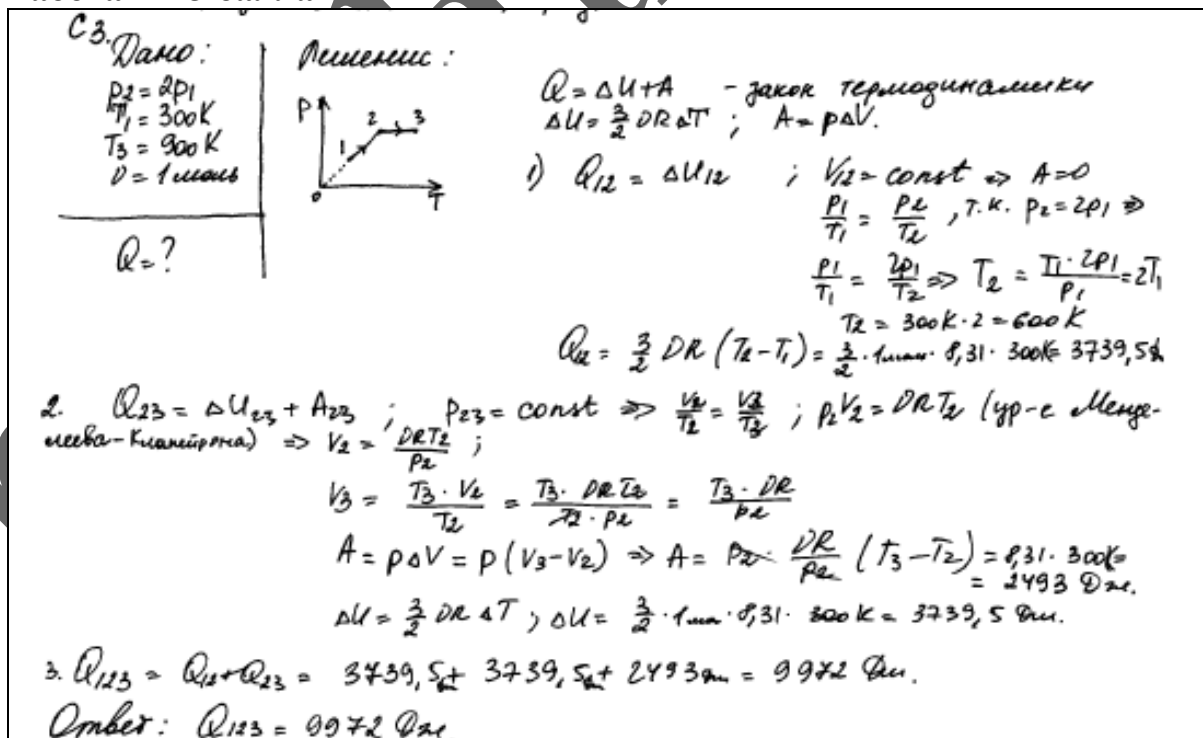 С3.
Дано:
p2 = 2p1
T1 = 300К
T3 = 900К
ν = 1 моль
Q = ?
Решение:
P
1 2 3
0
T
Q = ΔU + A – закон термодинамики
ΔU = 3/2 νRΔT ; A = pΔV.
1) Q12 = ΔU12 ; V12 = const ⇒ A=0
p1/T1 = p2/T2 , т.к. p2 = 2p1 ⇒
p1/T1 = 2p1/T2 ⇒ T2 = T1·2p1/p1 = 2T1
T2 = 300К·2 = 600К
Q12 = 3/2 νR (T2 – T1) = 3/2 · 1моль · 8,31 · 300К = 3739,5 Дж
2. Q23 = ΔU23 + A23 ; p23 = const ⇒ V2/T2 = V3/T3 ; p2V2 = νRT2 (ур-е Менде-
леева-Клапейрона) ⇒ V2 = νRT2/p2 ;
V3 = T3·V2/T2 = T3·νRT2/T2·p2 = T3·νR/p2
A = pΔV = p(V3–V2) ⇒ A = p2· νR/p2 (T3–T2) = 8,31 · 300К =
= 2493 Дж.
ΔU = 3/2 νRΔT ; ΔU = 3/2 · 1моль · 8,31 · 300К = 3739,5 Дж.
3. Q123 = Q12 + Q23 = 3739,5Дж + 3739,5Дж + 2493Дж = 9972 Дж.
Ответ: Q123 = 9972 Дж.